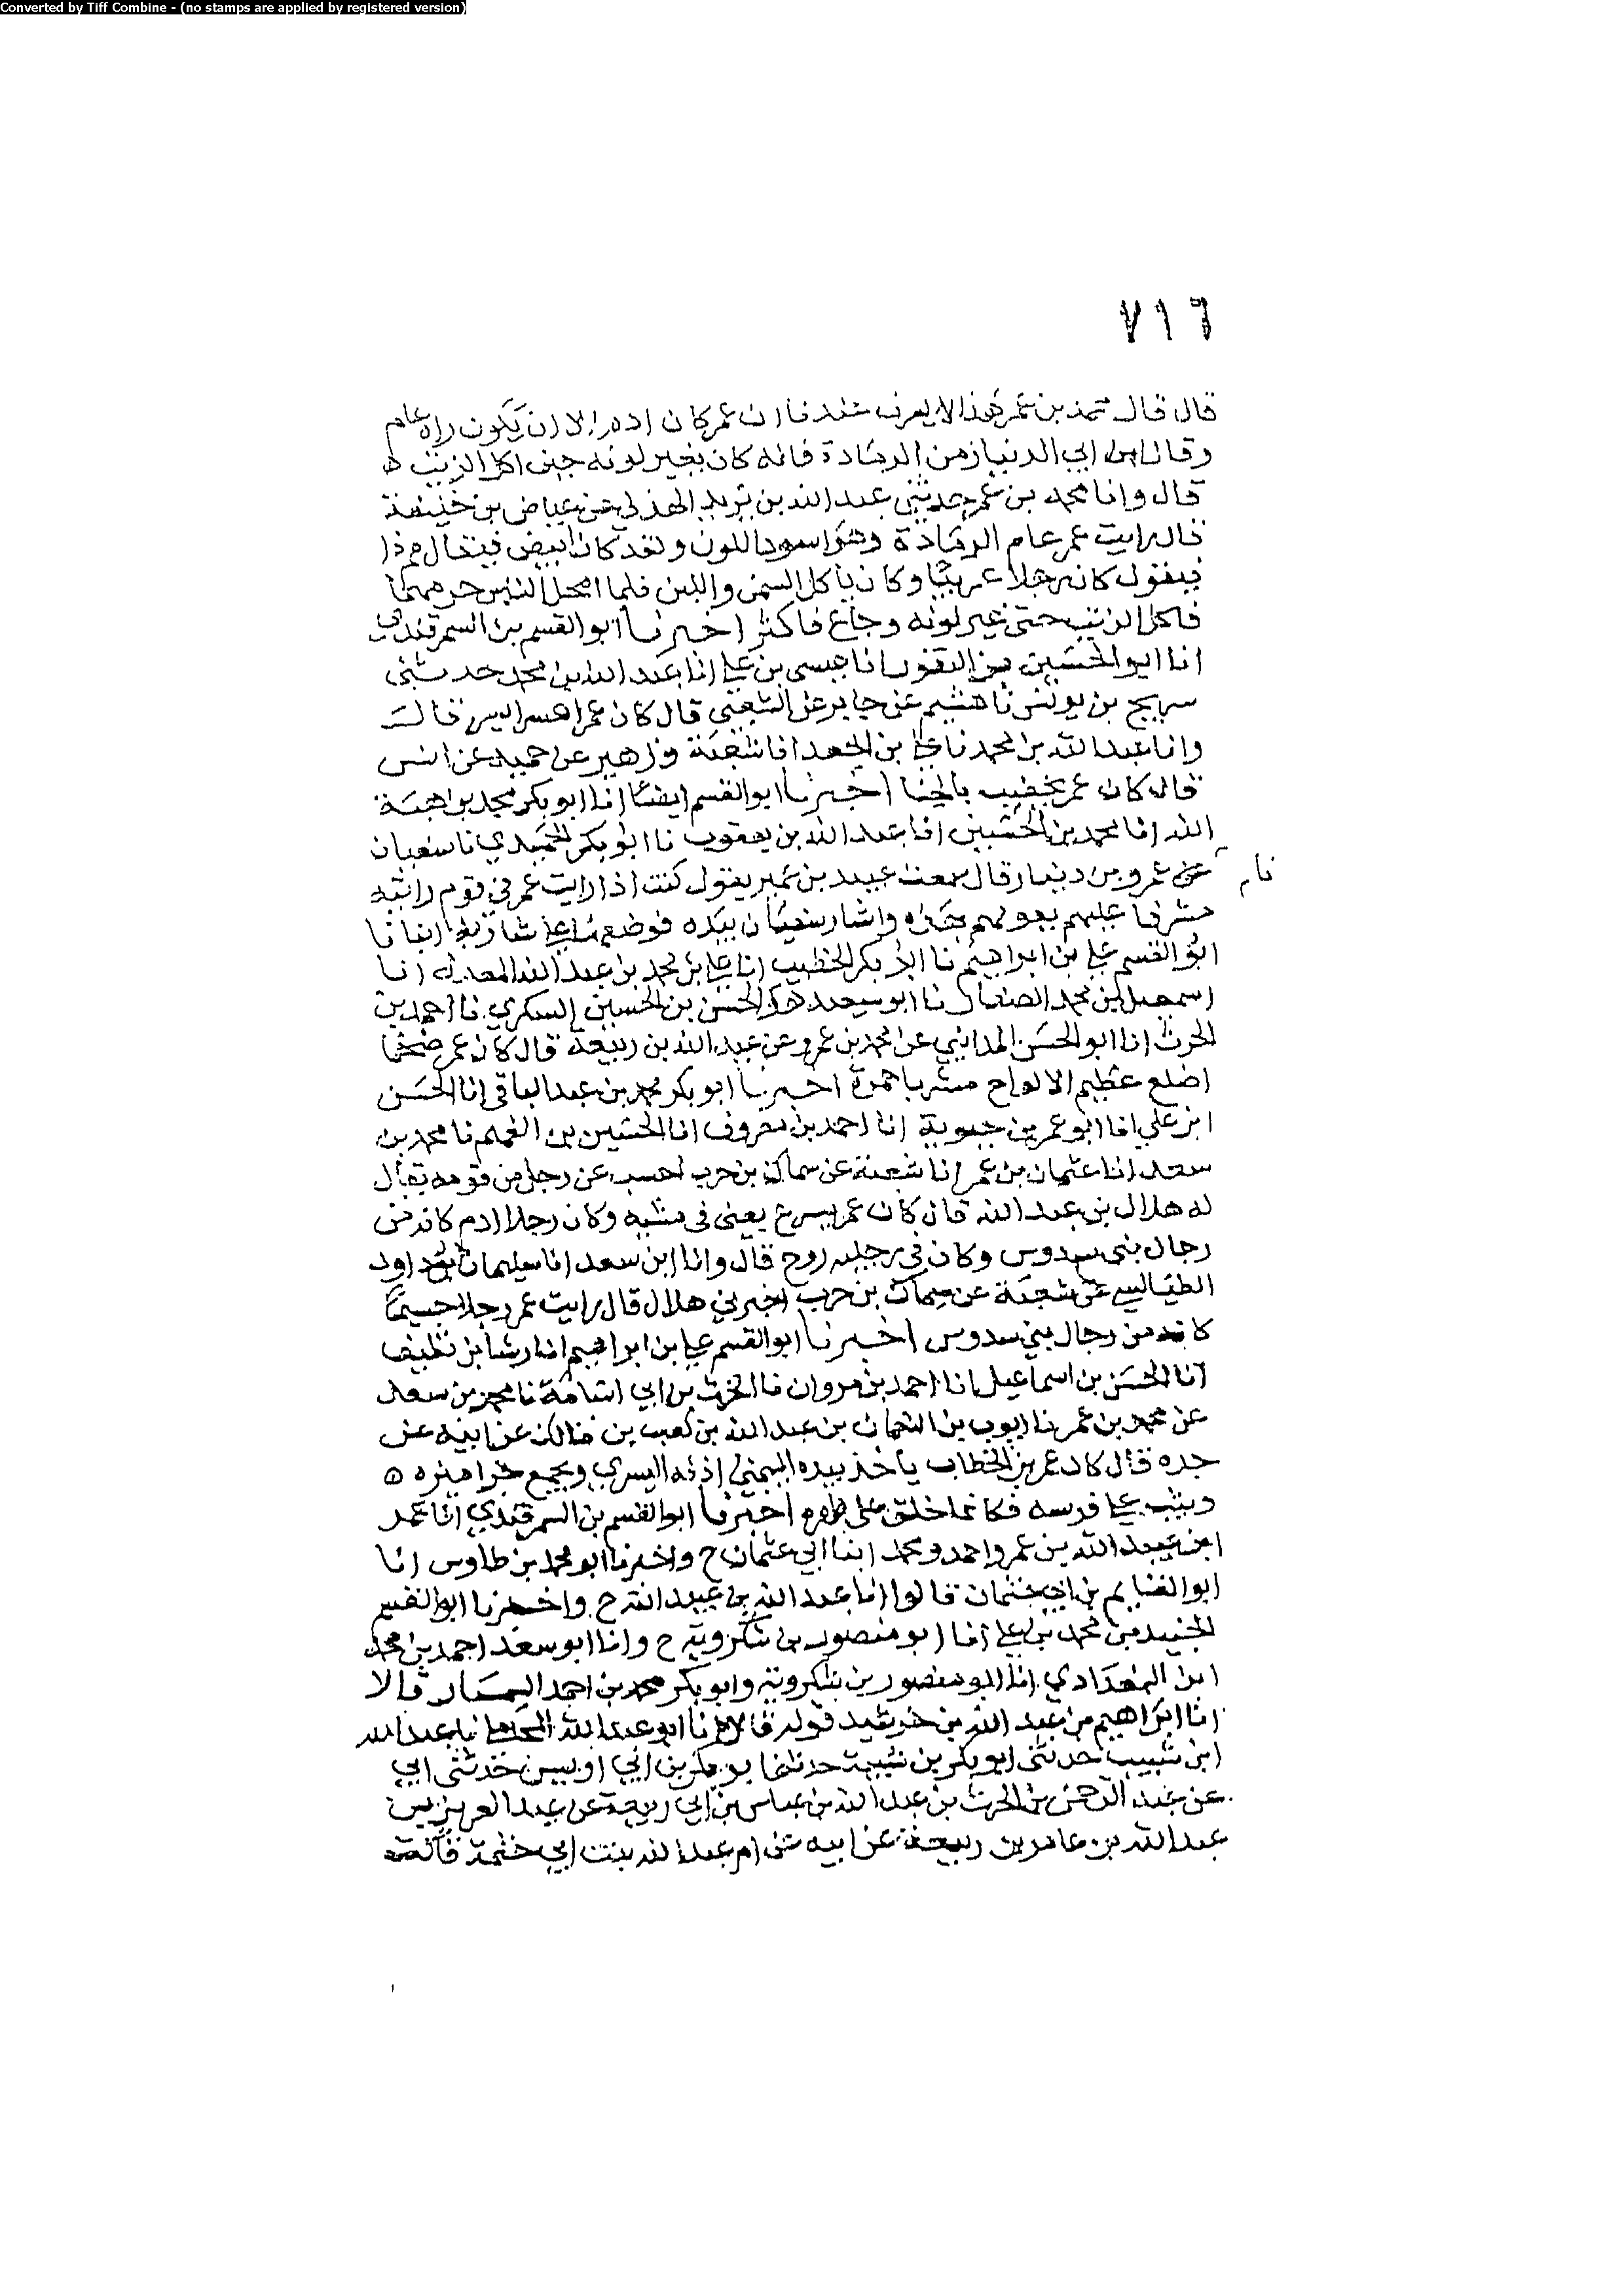 Converted by Tiff Combine - (no stamps are applied by registered version)
٧١٦
قال قال محمد بن عمر هذا لا يعرف عندنا ان عمر كان ادم الا ان يكون راه عام
وقال ابن ابي الدنيا زمن الرمادة فانه كان تغير لونه حين اكل الزيت
قال وانا محمد بن عمر حدثني عبد الله بن يزيد الهذلي عن عياض بن خليفة
قال رايت عمر عام الرمادة وهو اسود اللون ولقد كان ابيض فيقال مم ذا
فيقول كان رجلا عربيا وكان ياكل السمن واللبن فلما امحل الناس حرمهما
فاكل الزيت حتى غير لونه وجاع فاكثر اخبرنا ابو القسم بن السمرقندي
انا ابو الحسين بن النقور انا عيسى بن علي انا عبد الله بن محمد حدثني
سريج بن يونس نا هشيم عن جابر عن الشعبي قال كان عمر اعسر ايسر قال
وانا عبد الله بن محمد نا علي بن الجعد انا شعبة وزهير عن حميد عن انس
قال كان عمر يخضب بالحنا اخبرنا ابو القسم ايضا انا ابو بكر محمد بن هبة
الله انا محمد بن الحسين انا عبد الله بن يعقوب نا ابو بكر الحميدي نا سفيان
نا
عن عمرو بن دينار قال سمعت عبيد بن عمير يقول كنت اذا رايت عمر في قوم رايته
مشرفا عليهم يعولهم بهذه واشار سفيان بيده فوضعها على شاربه انبانا
ابو القسم علي بن ابراهيم نا ابو بكر الخطيب انا علي بن محمد بن عبد الله المعدل انا
اسمعيل بن محمد الصفار نا ابو سعيد الحسن بن الحسين السكري نا احمد بن
الحرث انا ابو الحسن المدايني عن محمد بن عمرو عن عبد الله بن ربيعة قال كان عمر ضخما
اضلع عظيم الالواح مشربا حمرة اخبرنا ابو بكر محمد بن عبد الباقي انا الحسن
ابن علي انا ابو عمر بن حيوية انا احمد بن معروف انا الحسين بن الفهم نا محمد بن
سعد انا عثمان بن عمر انا شعبة عن سماك بن حرب احسب عن رجل من قومه يقال
له هلال بن عبد الله قال كان عمر يسرع يعني في مشيه وكان رجلا ادم كانه من
رجال بني سدوس وكان في رجليه روح قال وانا ابن سعد انا سليمان ابو داود
الطيالسي عن شعبة عن سماك بن حرب اخبرني هلال قال رايت عمر رجلا جسيما
كانه من رجال بني سدوس اخبرنا ابو القسم علي بن ابراهيم انا رشا بن نظيف
انا الحسن بن اسماعيل انا احمد بن مروان نا الحرث بن ابي اسامة نا محمد بن سعد
عن محمد بن عمر نا ايوب بن النعمان بن عبد الله بن كعب بن مالك عن ابيه عن
جده قال كان عمر بن الخطاب ياخذ بيده اليمنى اذنه اليسرى ويجمع جراميزه ه
ويثب على فرسه فكانما خلق على ظهره اخبرنا ابو القسم بن السمرقندي انا عمر
ابن عبيد الله بن عمر واحمد ومحمد ابنا ابي عثمان ح واخبرنا ابو محمد بن طاوس انا
ابو الغنايم بن ابي عثمان قالوا انا عبد الله بن عبيد الله ح واخبرنا ابو القسم
الجنيد بن محمد بن علي انا ابو منصور بن شكروية ح وانا ابو سعد احمد بن محمد
ابن البغدادي انا ابو منصور بن شكروية وابو بكر محمد بن احمد السمسار قالا
انا ابراهيم بن عبد الله بن خرشيد قوله قالا نا ابو عبد الله المحاملي نا عبد الله
ابن شبيب حدثني ابو بكر بن شيبة حدثنا ابو بكر بن ابي اويس حدثني ابي
عن عبد الرحمن بن الحرث بن عبد الله بن عباس بن ابي ربيعة عن عبد العزيز بن
عبد الله بن عامر بن ربيعة عن ابيه عن ام عبد الله بنت ابي خثمة قالت